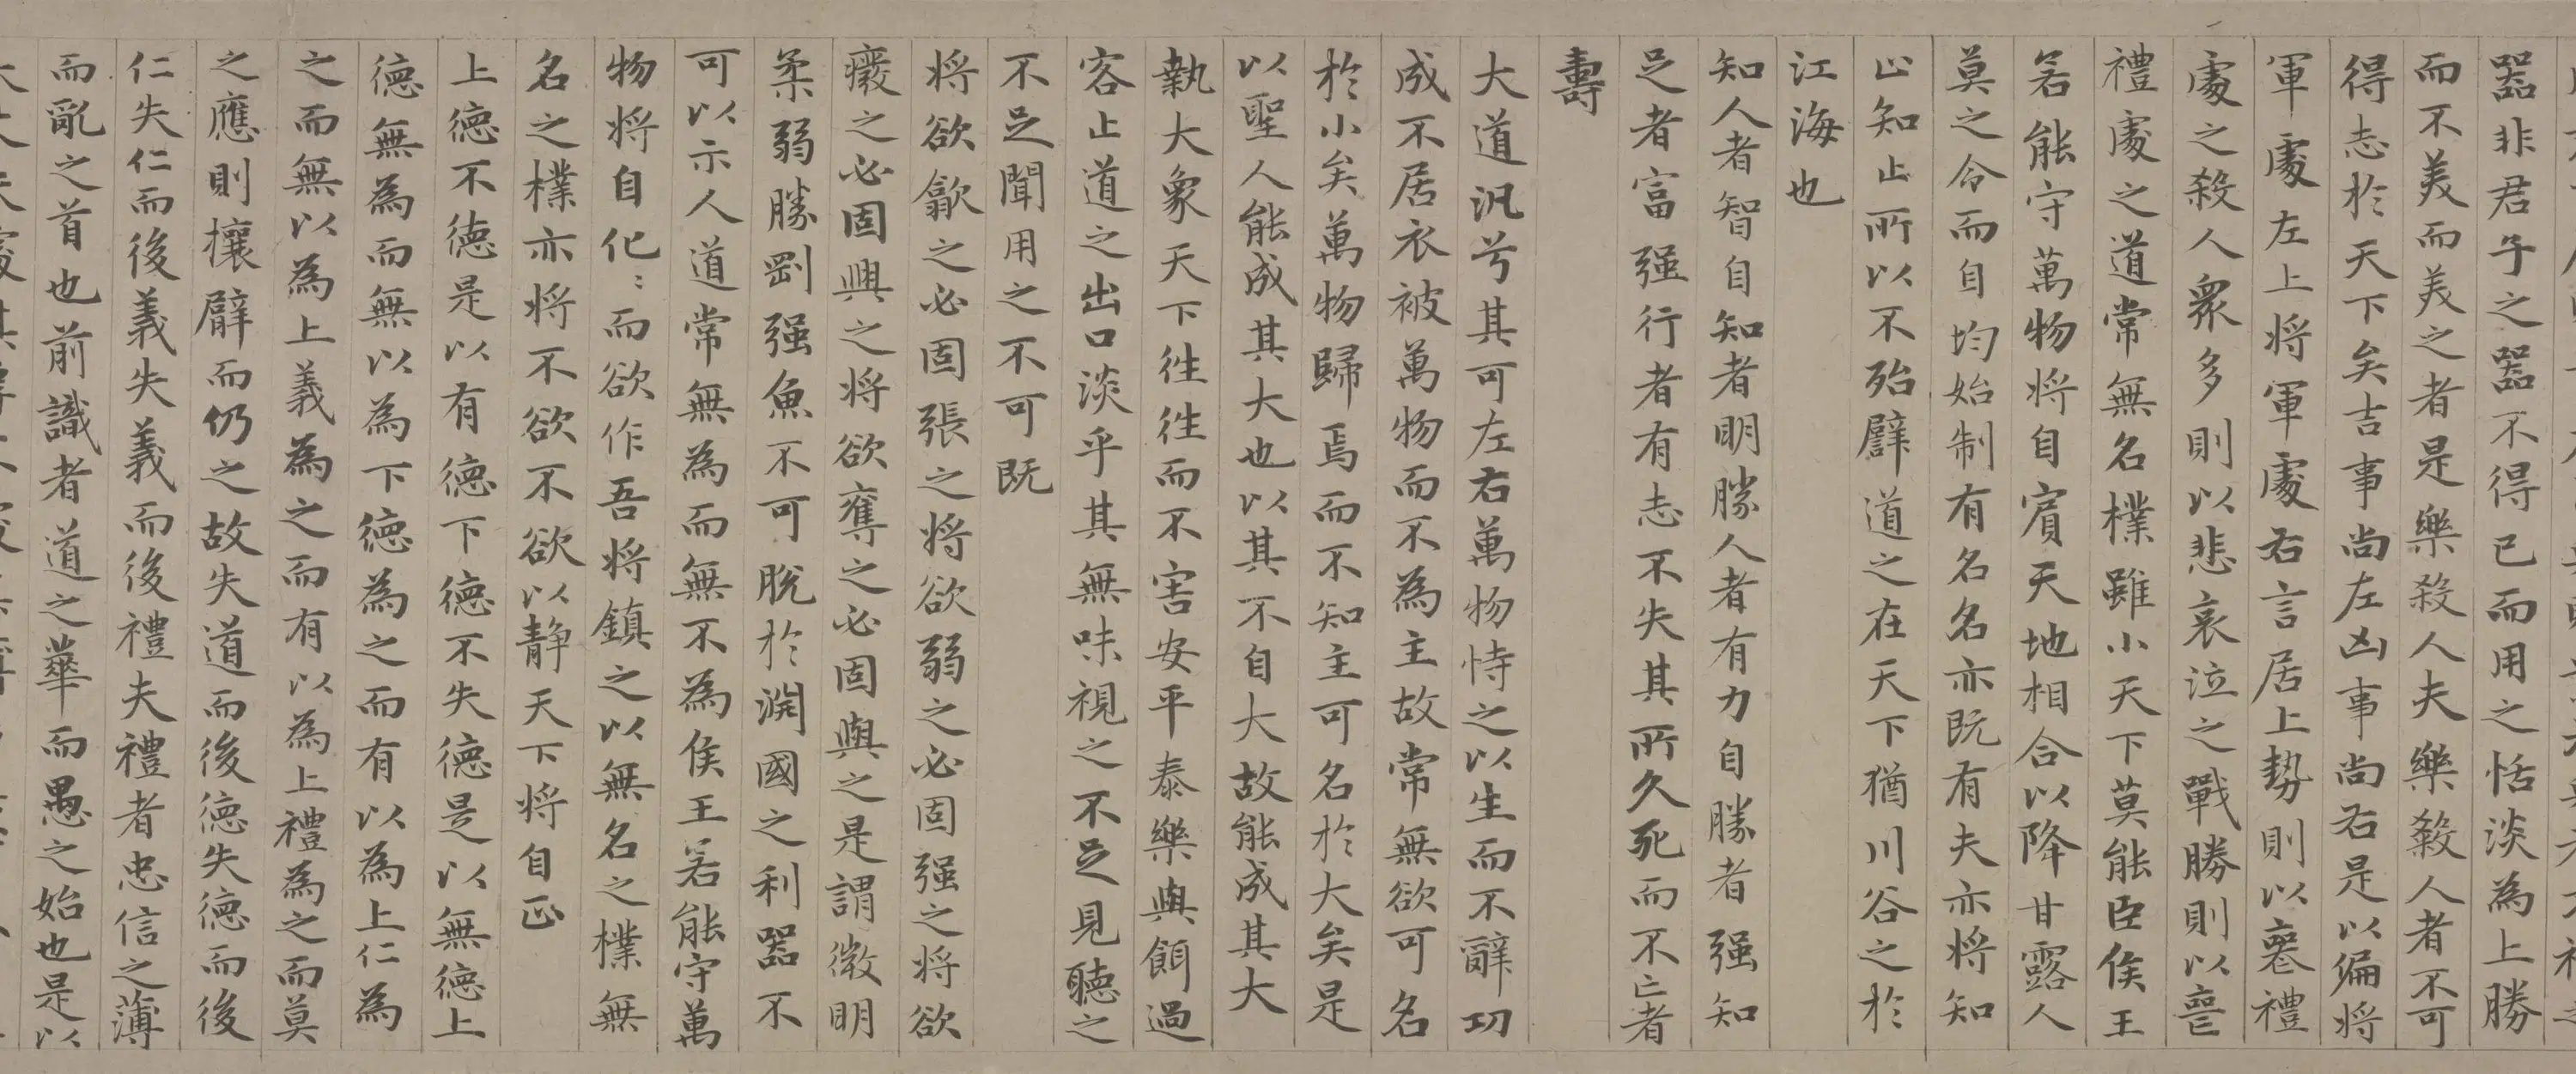 器非君子之器不得已而用之恬淡為上勝
而不美而美之者是樂殺人夫樂殺人者不可
得志於天下矣吉事尚左凶事尚右是以偏將
軍處左上將軍處右言居上勢則以喪禮
處之殺人衆多則以悲哀泣之戰勝則以喪
禮處之道常無名樸雖小天下莫能臣侯王
若能守萬物將自賓天地相合以降甘露人
莫之令而自均始制有名名亦既有夫亦將知
止知止所以不殆譬道之在天下猶川谷之於
江海也
知人者智自知者明勝人者有力自勝者强知
足者富强行者有志不失其所久死而不亡者
壽
大道汎兮其可左右萬物恃之以生而不辭功
成不居衣被萬物而不為主故常無欲可名
於小矣萬物歸焉而不知主可名於大矣是
以聖人能成其大也以其不自大故能成其大
執大象天下徃徃而不害安平泰樂與餌過
客止道之出口淡乎其無味視之不足見聽之
不足聞用之不可既
將欲歙之必固張之將欲弱之必固强之將欲
癈之必固興之將欲奪之必固與之是謂微明
柔弱勝剛强魚不可脫於淵國之利器不
可以示人道常無為而無不為侯王若能守萬
物將自化〻而欲作吾將鎮之以無名之樸無
名之樸亦將不欲不欲以静天下將自正
上德不德是以有德下德不失德是以無德上
德無為而無以為下德為之而有以為上仁為
之而無以為上義為之而有以為上禮為之而莫
之應則攘臂而仍之故失道而後德失德而後
仁失仁而後義失義而後禮夫禮者忠信之薄
而亂之首也前識者道之華而愚之始也是以